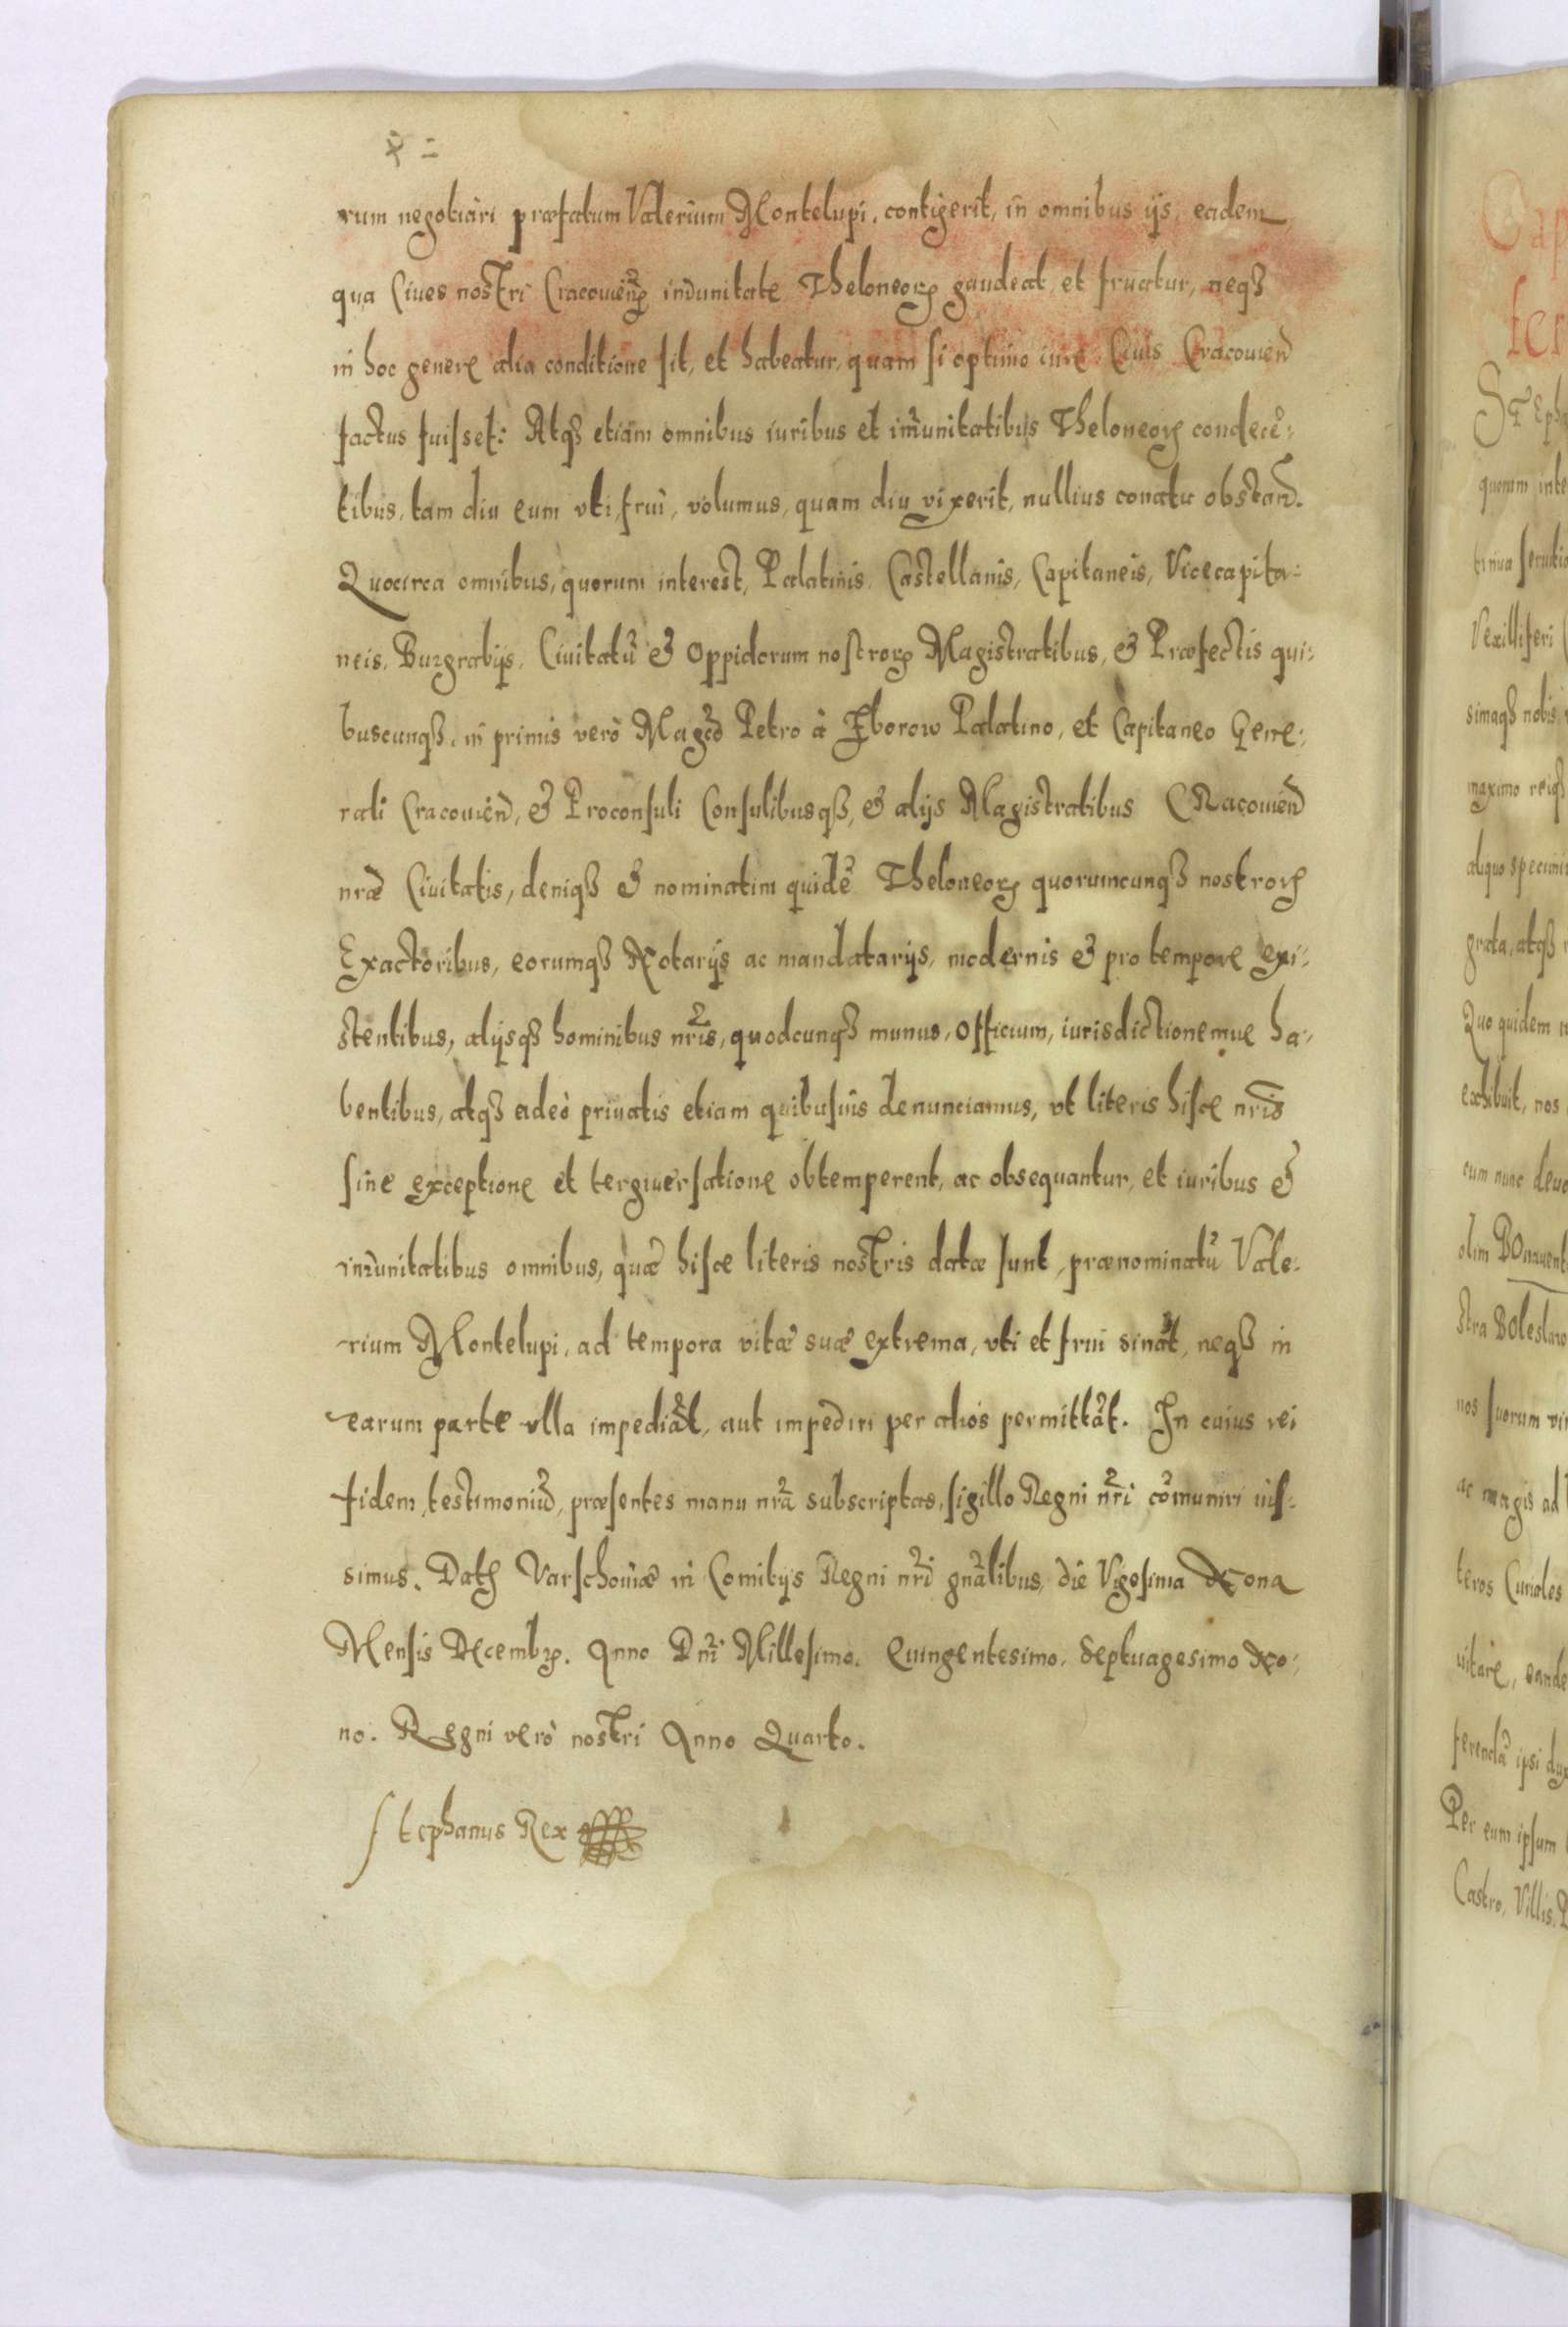 rum negotiari præfatum Valerium Montelupi, contigerit, in omnibus ijs, eadem
qua Ciues nostri Cracouień immunitate Theloneorꝝ gaudeat, et fruatur, neqꝫ
in hoc genere alia conditione sit, et habeatur, quam si optimo iure Ciuis Cracouień
factus fuisset: Atqꝫ etiam omnibus iuribus et im̃unitatibus Theloneorꝝ condecē:
tibus, tam diu eum vti, frui, volumus, quam diu vixerit, nullius conatu obstañ.
Quocirca omnibus, quorum interest, Palatinis, Castellanis, Capitaneis, Vicecapita:
neis, Burgrabijs, Ciuitatũ & oppidorum nostrorꝝ Magistratibus, & Præfectis qui:
buscunqꝫ, in primis verò Magcõ Petro à Zborow Palatino, et Capitaneo Gene:
rali Cracouień, & Proconsuli Consulibusqꝫ, & alijs Magistratibus Cracouień
nræ Ciuitatis, deniqꝫ & nominatim quidẽ Theloneorꝝ quorumcunqꝫ nostrorꝝ
Exactoribus, eorumqꝫ Notarijs ac mandatarijs, modernis & pro tempore exi:
stentibus, alijsqꝫ hominibus nr̃is, quodcunqꝫ munus, officium, iurisdictionemue ha:
bentibus, atqꝫ adeò priuatis etiam quibusuis denunciamus, vt literis hisce nr̃is
sine exceptione et tergiuersatione obtemperent, ac obsequantur, et iuribus &
im̃unitatibus omnibus, quæ hisce literis nostris datæ sunt, prænominatũ Vale:
rium Montelupi, ad tempora vitæ suæ extrema, vti et frui sinãt, neqꝫ in
earum parte vlla impediãt, aut impediri per alios permittãt. In cuius rei
fidem, testimoniũ, præsentes manu nr̃a subscriptas, sigillo Regni nr̃i cõmuniri ius:
simus. Datꝭ Varschouiæ in Comitijs Regni nr̃i gnãlibus, die Vigesima Nona
Mensis Decembꝝ. Anno Dn̄i Millesimo. Quingentesimo. Septuagesimo No:
no. Regni verò nostri Anno Quarto.
Stephanus Rex
Cap
fer
Steph
quorum inte
Vexilliferi
simaqꝫ nobis
maximo reiqꝫ
aliquo specimi
grata, atqꝫ
Quo quidem
exhibuit, nos
cum nunc deuo
olim Bonauent
stra Boleslaw
nos suorum vi
ac magis ad
teros Curiales
uitare, eande
ferendã ipsi dux
Per eum ipsum
Castro, Villis, P